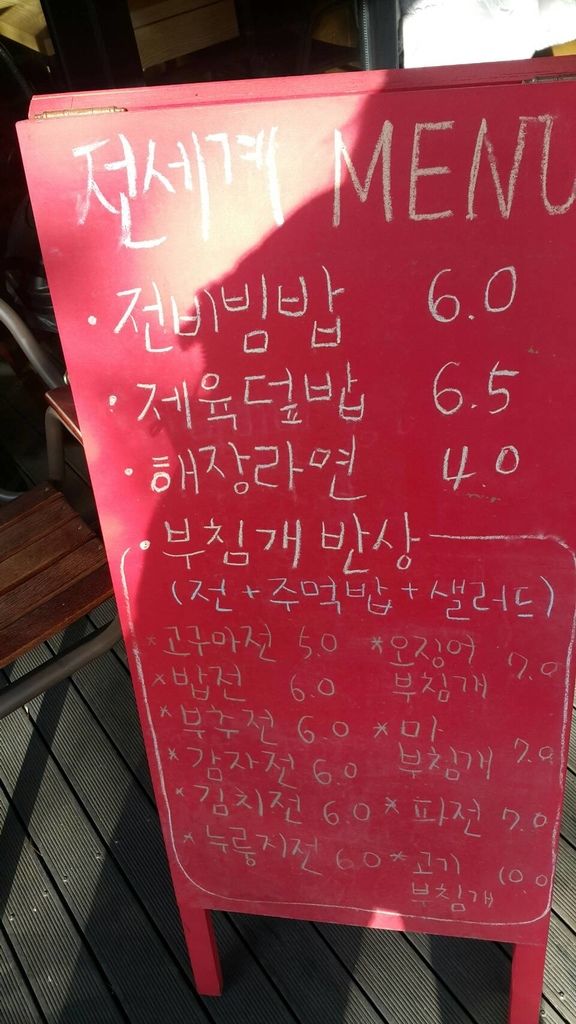 전세계 MENU
· 전비빔밥 6.0
· 제육덮밥 6.5
· 해장라면 4.0
· 부침개 반상
(전+주먹밥+샐러드)
* 고구마전 5.0
* 밥전 6.0
* 부추전 6.0
* 감자전 6.0
* 김치전 6.0
* 누룽지전 6.0
* 오징어 7.0
부침개
* 마
부침개 7.0
* 파전 7.0
* 고기 10.0
부침개